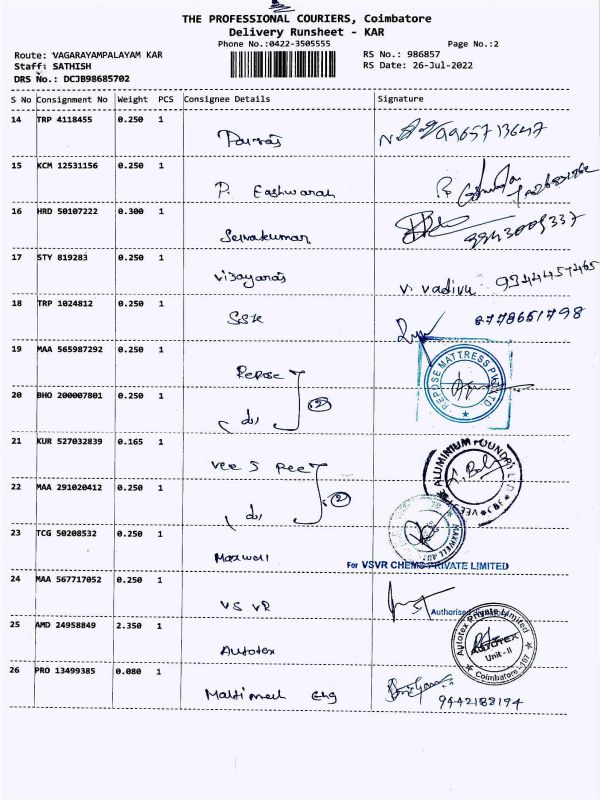 THE PROFESSIONAL COURIERS, Coimbatore
Delivery Runsheet - KAR
Phone No.:0422-3505555 Page No.:2
Route: VAGARAYAMPALAYAM KAR RS No.: 986857
Staff: SATHISH RS Date: 26-Jul-2022
DRS No.: DCJB98685702
S No Consignment No Weight PCS Consignee Details Signature
14 TRP 4118455 0.250 1
9965713647
15 KCM 12531156 0.250 1
P. Eashwaran
16 HRD 50107222 0.300 1
Selvakumar 9943009337
17 STY 819283 0.250 1
Vijayaraj V. Vadivu 9944457465
18 TRP 1024812 0.250 1
SSK 8778651798
19 MAA 565987292 0.250 1
Repose REPOSE MATTRESS PVT LTD
20 BHO 200007801 0.250 1
(do) 2
21 KUR 527032839 0.165 1
Vee J Pee ALUMINIUM FOUNDRY
22 MAA 291020412 0.250 1
(do) 2
23 TCG 50208532 0.250 1
Maxwell MAXWELL
For VSVR CHEMS PRIVATE LIMITED
24 MAA 567717052 0.250 1
VS VR Authorised
25 AMD 24958849 2.350 1
Autotex Autotex Private Limited AUTOTEX Unit-II Coimbatore
26 PRO 13499385 0.080 1
Eng 9442188194